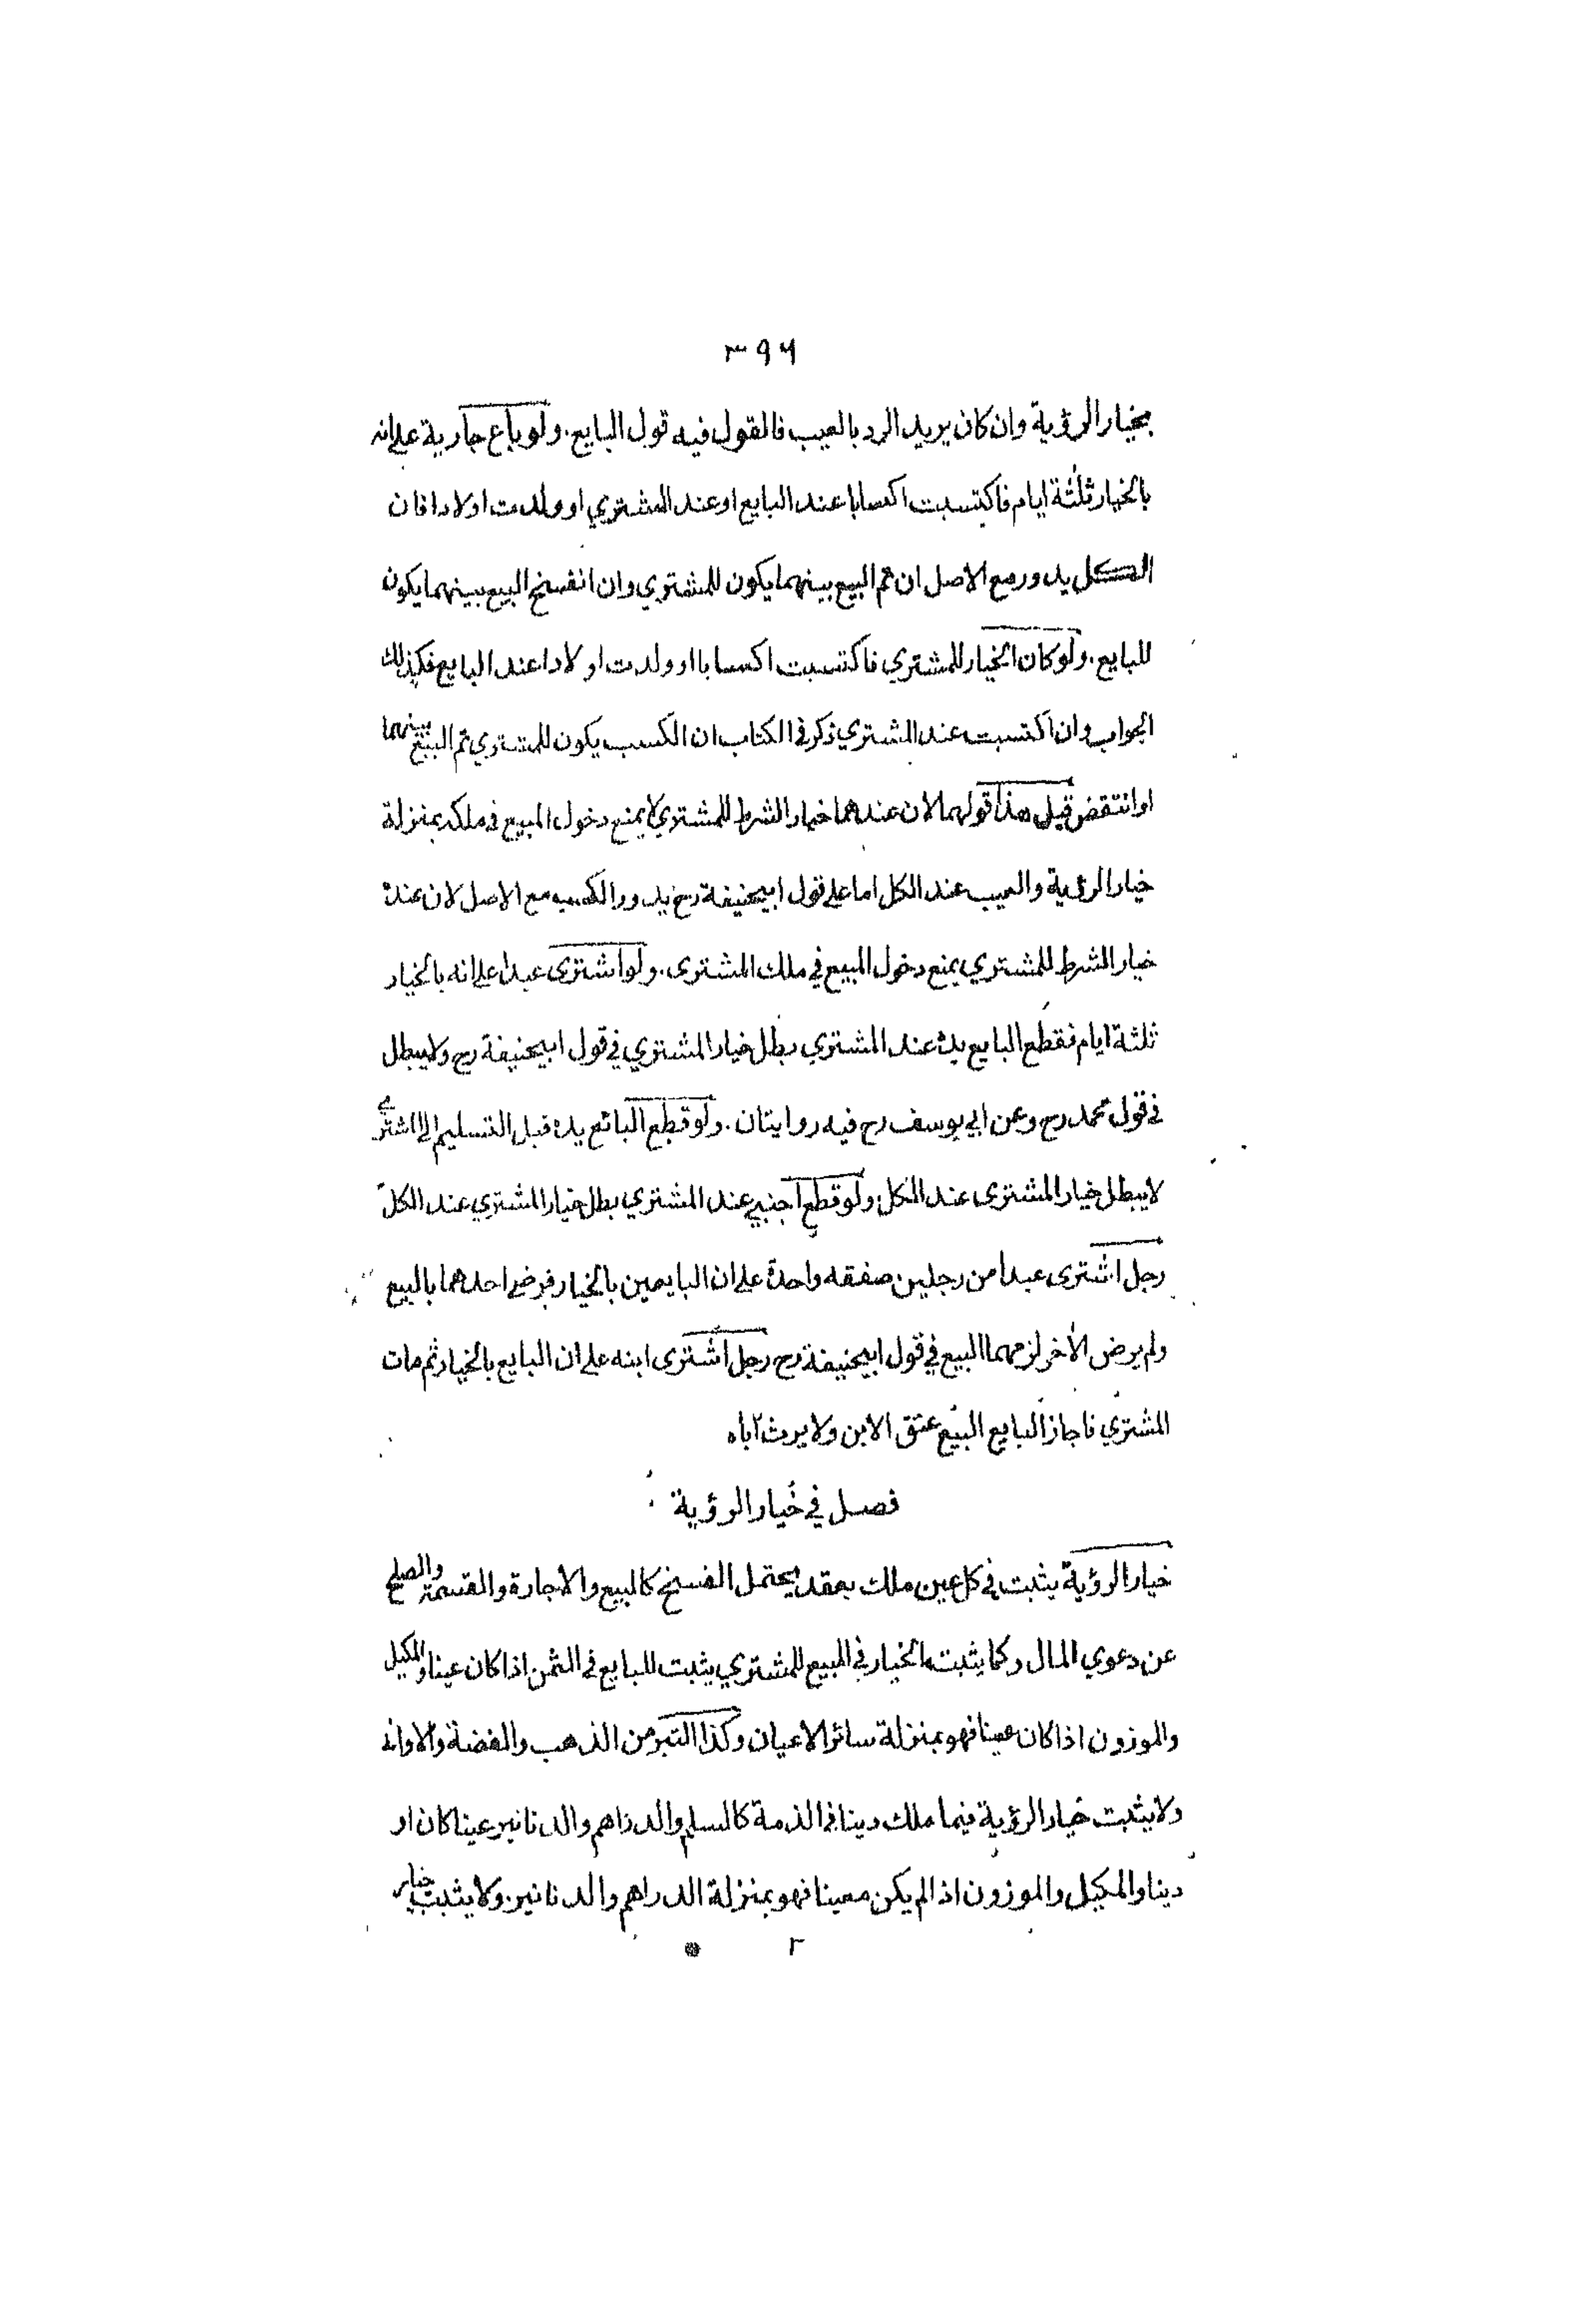 ٣٩٦
بخيار الرؤية وان كان يريد الرد بالعيب فالقول فيه قول البايع. ولو باع جارية على انه
بالخيار ثلثة ايام فاكتسبت اكسابا عند البايع او عند المشتري او ولدت اولادا فان
الكل يدور مع الاصل ان تم البيع بينهما يكون للمشتري وان انفسخ البيع بينهما يكون
للبايع. ولو كان الخيار للمشتري فاكتسبت اكسابا او ولدت اولادا عند البايع فكذلك
الجواب وان اكتسبت عند المشتري ذكر في الكتاب ان الكسب يكون للمشتري تم البيع بينهما
او انتقض قيل هذا قولهما لان عندهما خيار الشرط للمشتري لا يمنع دخول المبيع في ملكه بمنزلة
خيار الرؤية والعيب عند الكل اما على قول ابيحنيفة رح يدور الكسب مع الاصل لان عنده
خيار الشرط للمشتري يمنع دخول المبيع في ملك المشترى. ولو اشترى عبدا على انه بالخيار
ثلثة ايام فقطع البايع يده عند المشتري بطل خيار المشتري في قول ابيحنيفة رح ولا يبطل
في قول محمد رح وعن ابي يوسف رح فيه روايتان. ولو قطع البائع يده قبل التسليم الى المشتري
لا يبطل خيار المشترى عند الكل ولو قطع اجنبي عند المشتري بطل خيار المشتري عند الكل
رجل اشترى عبدا من رجلين صفقه واحدة على ان البايعين بالخيار فرضى احدهما بالبيع
ولم يرض الاخر لزمهما البيع في قول ابيحنيفة رح رجل اشترى ابنه على ان البايع بالخيار ثم مات
المشتري فاجاز البايع البيع عتق الابن ولا يرث اباه
فصل في خيار الرؤية
خيار الرؤية يثبت في كل عين ملك بعقد يحتمل الفسخ كالبيع والاجارة والقسمة والصلح
عن دعوي المال وكما يثبت الخيار في المبيع للمشتري يثبت للبايع في الثمن اذا كان عينا والمكيل
والموزون اذا كان عينا فهو بمنزلة سائر الاعيان وكذا التبر من الذهب والفضة والاوانى
ولا يثبت خيار الرؤية فيما ملك دينا في الذمة كالسلم والدراهم والدنانير عينا كان او
دينا والمكيل والموزون اذا لم يكن معينا فهو بمنزلة الدراهم والدنانير. ولا يثبت خيار
٢